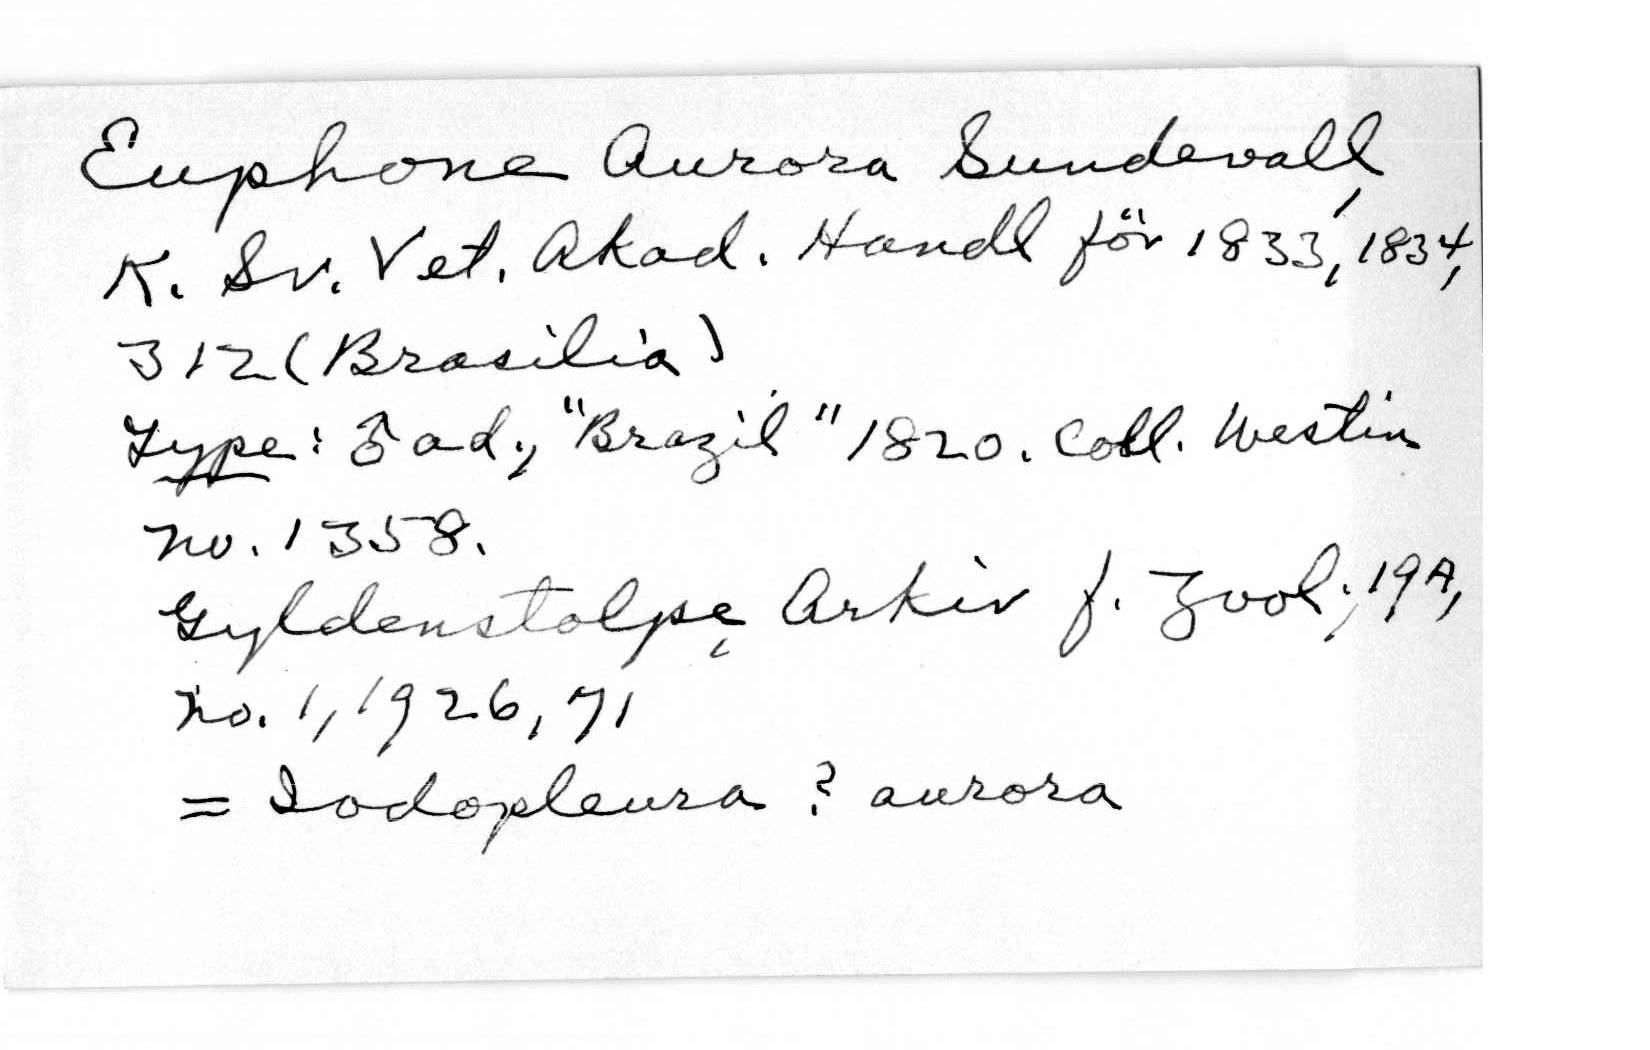 Euphone Aurora Sundevall,
K. Sv. Vet. Akad. Handl för 1833, 1834,
312 (Brasilia)
Type: ♂ ad., "Brazil" 1820. Coll. Westin
no. 1358.
Gyldenstolpe, Arkiv f. Zool., 19A,
no. 1, 1926, 71
= Iodopleura ? aurora